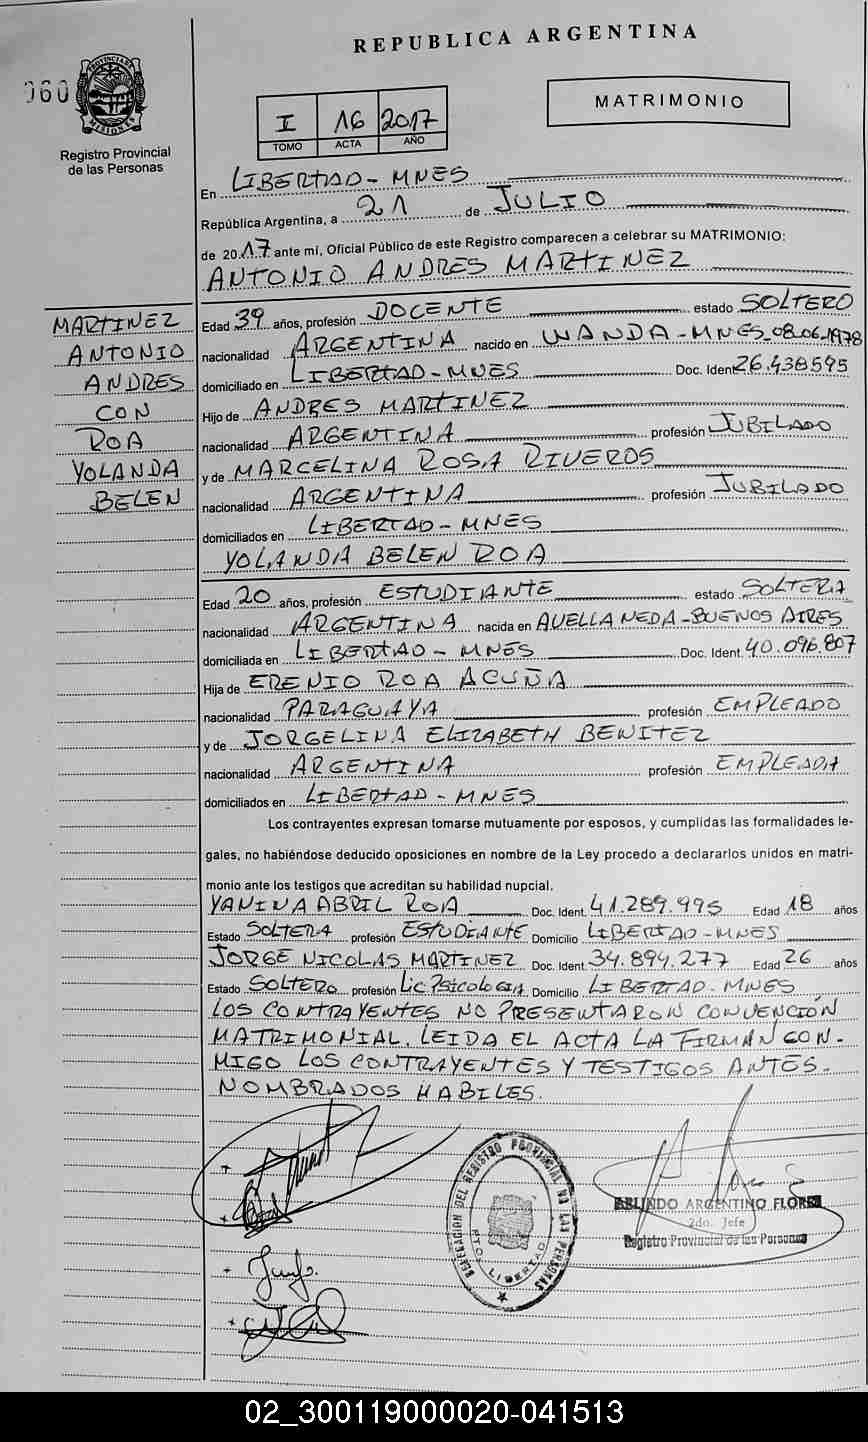 REPUBLICA ARGENTINA
060
PROVINCIA DE
MISIONES
Registro Provincial
de las Personas
I 16 2017
TOMO ACTA AÑO
MATRIMONIO
En LIBERTAD - MNES
República Argentina, a 21 de JULIO
de 2017 ante mí, Oficial Público de este Registro comparecen a celebrar su MATRIMONIO:
ANTONIO ANDRES MARTINEZ
MARTINEZ
ANTONIO
ANDRES
CON
ROA
YOLANDA
BELEN
Edad 39 años, profesión DOCENTE estado SOLTERO
nacionalidad ARGENTINA nacido en WANDA - MNES_08.06.1978
domiciliado en LIBERTAD - MNES Doc. Ident 26.438.595
Hijo de ANDRES MARTINEZ
nacionalidad ARGENTINA profesión JUBILADO
y de MARCELINA ROSA RIVEROS
nacionalidad ARGENTINA profesión JUBILADO
domiciliados en LIBERTAD - MNES
YOLANDA BELEN ROA
Edad 20 años, profesión ESTUDIANTE estado SOLTERA
nacionalidad ARGENTINA nacida en AVELLANEDA - BUENOS AIRES
domiciliada en LIBERTAD - MNES Doc. Ident. 40.096.807
Hija de ERENIO ROA ACUÑA
nacionalidad PARAGUAYA profesión EMPLEADO
y de JORGELINA ELIZABETH BENITEZ
nacionalidad ARGENTINA profesión EMPLEADA
domiciliados en LIBERTAD - MNES
Los contrayentes expresan tomarse mutuamente por esposos, y cumplidas las formalidades le-
gales, no habiéndose deducido oposiciones en nombre de la Ley procedo a declararlos unidos en matri-
monio ante los testigos que acreditan su habilidad nupcial.
YANINA ABRIL ROA Doc. Ident. 41.289.995 Edad 18 años
Estado SOLTERA profesión ESTUDIANTE Domicilio LIBERTAD - MNES
JORGE NICOLAS MARTINEZ Doc. Ident. 34.894.277 Edad 26 años
Estado SOLTERO profesión Lic Psicologia Domicilio LIBERTAD - MNES
LOS CONTRAYENTES NO PRESENTARON CONVENCIÓN
MATRIMONIAL. LEIDA EL ACTA LA FIRMAN CON-
MIGO LOS CONTRAYENTES Y TESTIGOS ANTES-
NOMBRADOS HABILES.
DELEGACION DEL REGISTRO PROVINCIAL DE LAS PERSONAS
PTO. LIBERTAD
ARLINDO ARGENTINO FLORES
2do. Jefe
Registro Provincial de las Personas
02_300119000020-041513